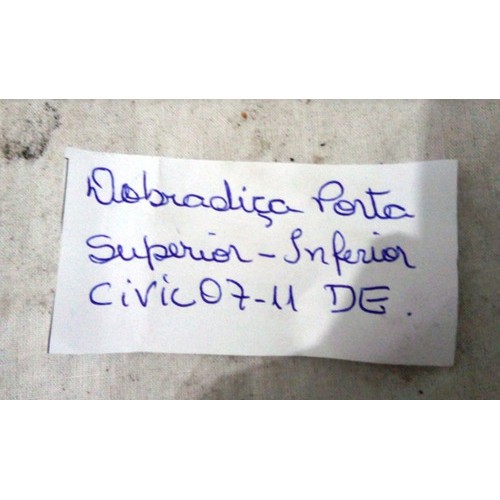 Dobradiça Porta
Superior - Inferior
Civic 07-11 DE.